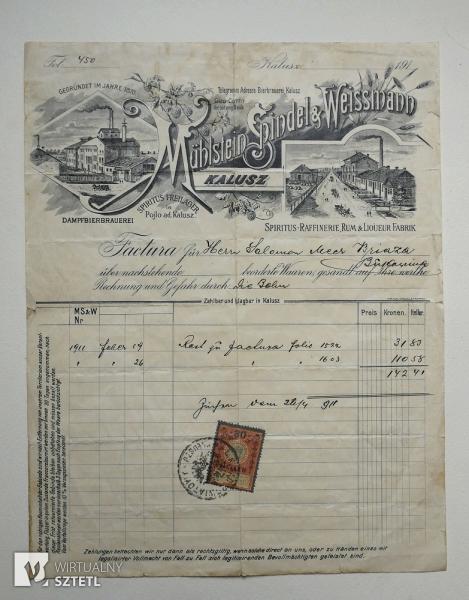 Fol. 450
Kalusz 191
GEGRÜNDET IM JAHRE 1811
Telegramm Adresse Bierbrauerei, Kalusz
Mühlstein, Spindel & Weissmann
KALUSZ
SPIRITUS-FREILAGER
in
Pojlo ad. Kalusz
DAMPFBIERBRAUEREI
SPIRITUS-RAFFINERIE, RUM & LIQUEUR FABRIK
Factura für Herrn Salomon Meer Briaza
Bukowina
über nachstehende beorderte Waaren, gesandt auf Ihre werthe
Rechnung und Gefahr durch die Bahn
Zahlbar und klagbar in Kalusz
MS&W
Nr
Preis Kronen. Heller.
1911 Feber 19 Rest zu factura folio 1522 31 83
" " 26 " " " 1603 110 58
142 41
vom 26/4 911
Zahlungen betrachten wir nur dann als rechtsgiltig, wenn solche direct an uns, oder zu Händen eines mit
legalisirter Vollmacht von Fall zu Fall sich legitimirenden Bevollmächtigten geleistet sind.
WIRTUALNY
SZTETL